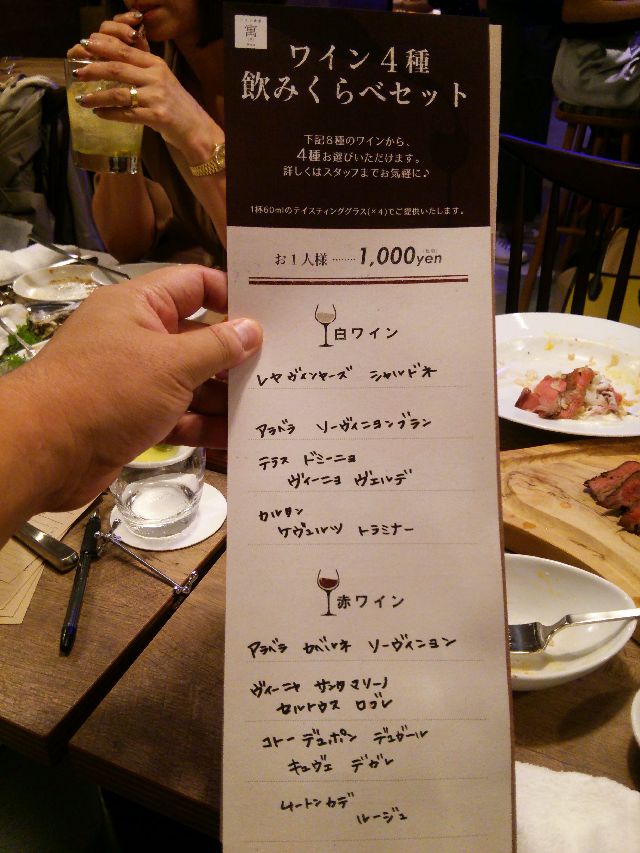 寓
ワイン4種
飲みくらべセット
下記8種のワインから、
4種お選びいただけます。
詳しくはスタッフまでお気軽に♪
1杯60mlのテイスティンググラス(×4)でご提供いたします。
お1人様 ········ 1,000yen
白ワイン
レヤ ヴィンヤーズ シャルドネ
アラベラ ソーヴィニヨンブラン
テラス ドミーニョ
ヴィーニョ ヴェルデ
カルタン
ゲヴュルツ トラミナー
赤ワイン
アラベラ カベルネ ソーヴィニヨン
ヴィーニャ サンタマリーノ
セルトウス ロブレ
コトー デュポン デュガール
キュヴェ デガレ
ムートンカデ
ルージュ